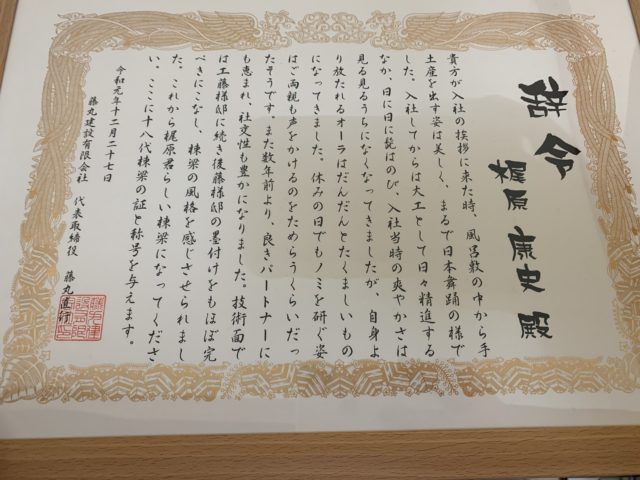 辞令
梶原 康史 殿
貴方が入社の挨拶に来た時、風呂敷の中から手
土産を出す姿は美しく、まるで日本舞踊の様で
した。入社してからは大工として日々精進する
なか、日に日に髭はのび、入社当時の爽やかさは
見る見るうちになくなってきましたが、自身よ
り放たれるオーラはだんだんとたくましいもの
になってきました。休みの日でもノミを研ぐ姿
はご両親も声をかけるのをためらうくらいだっ
たそうです。また数年前より、良きパートナーに
も恵まれ、社交性も豊かになりました。技術面で
は工藤様邸に続き後藤様邸の墨付けをもほぼ完
ぺきにこなし、棟梁の風格を感じさせられまし
た。これから梶原君らしい棟梁になってくださ
い。ここに十八代棟梁の証と称号を与えます。
令和元年十二月二十七日
藤丸建設有限会社 代表取締役 藤丸直行